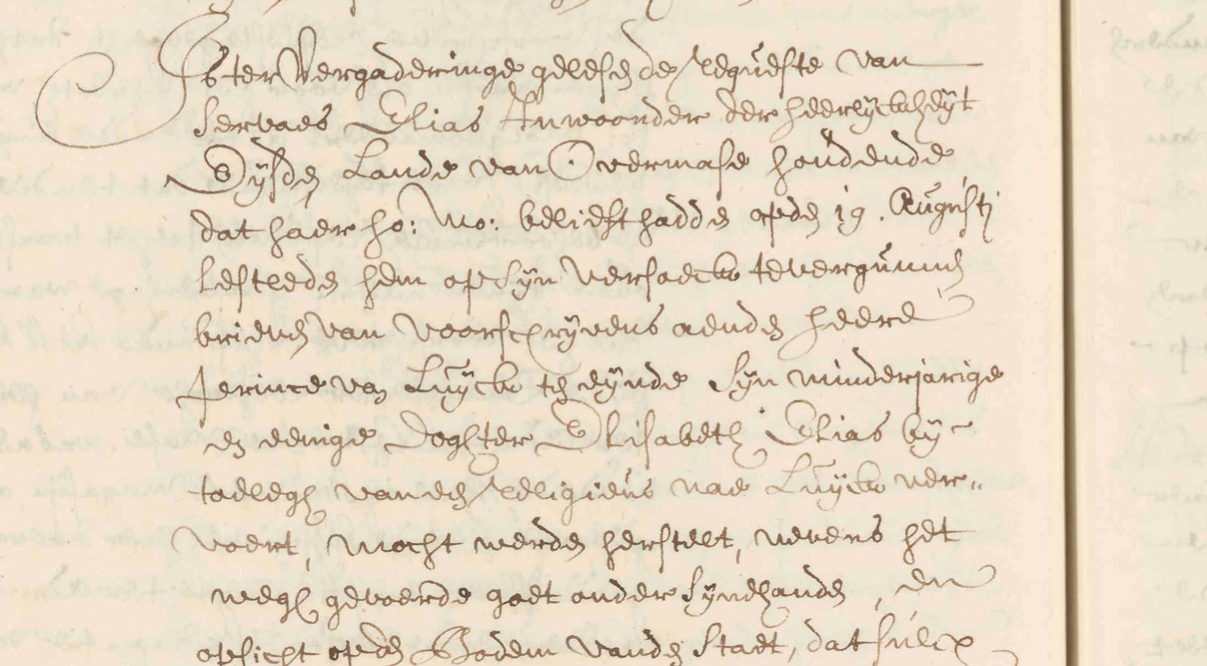 Is ter Vergaderinge gelesen de Requeste van
Servaes Elias Inwoonder der heerlijckheyt
Eysden Lande van Overmase houdende
dat haer ho: Mo: belieft hadde opden 19. Augusti
lestleden hem op sijn versoeck te vergunnen
brieven van voorschrijvens aenden heere
prince van Luyck ten eynde sijn minderjarige
en eenige dochter Elisabeth Elias by
toeleg van een Religieus nae Luyck ver-
voert, mocht werden herstelt, nevens het
wegh gevoerde goet onder sijn handen, en
opsicht opden Bodem vande Stadt, dat sulcx